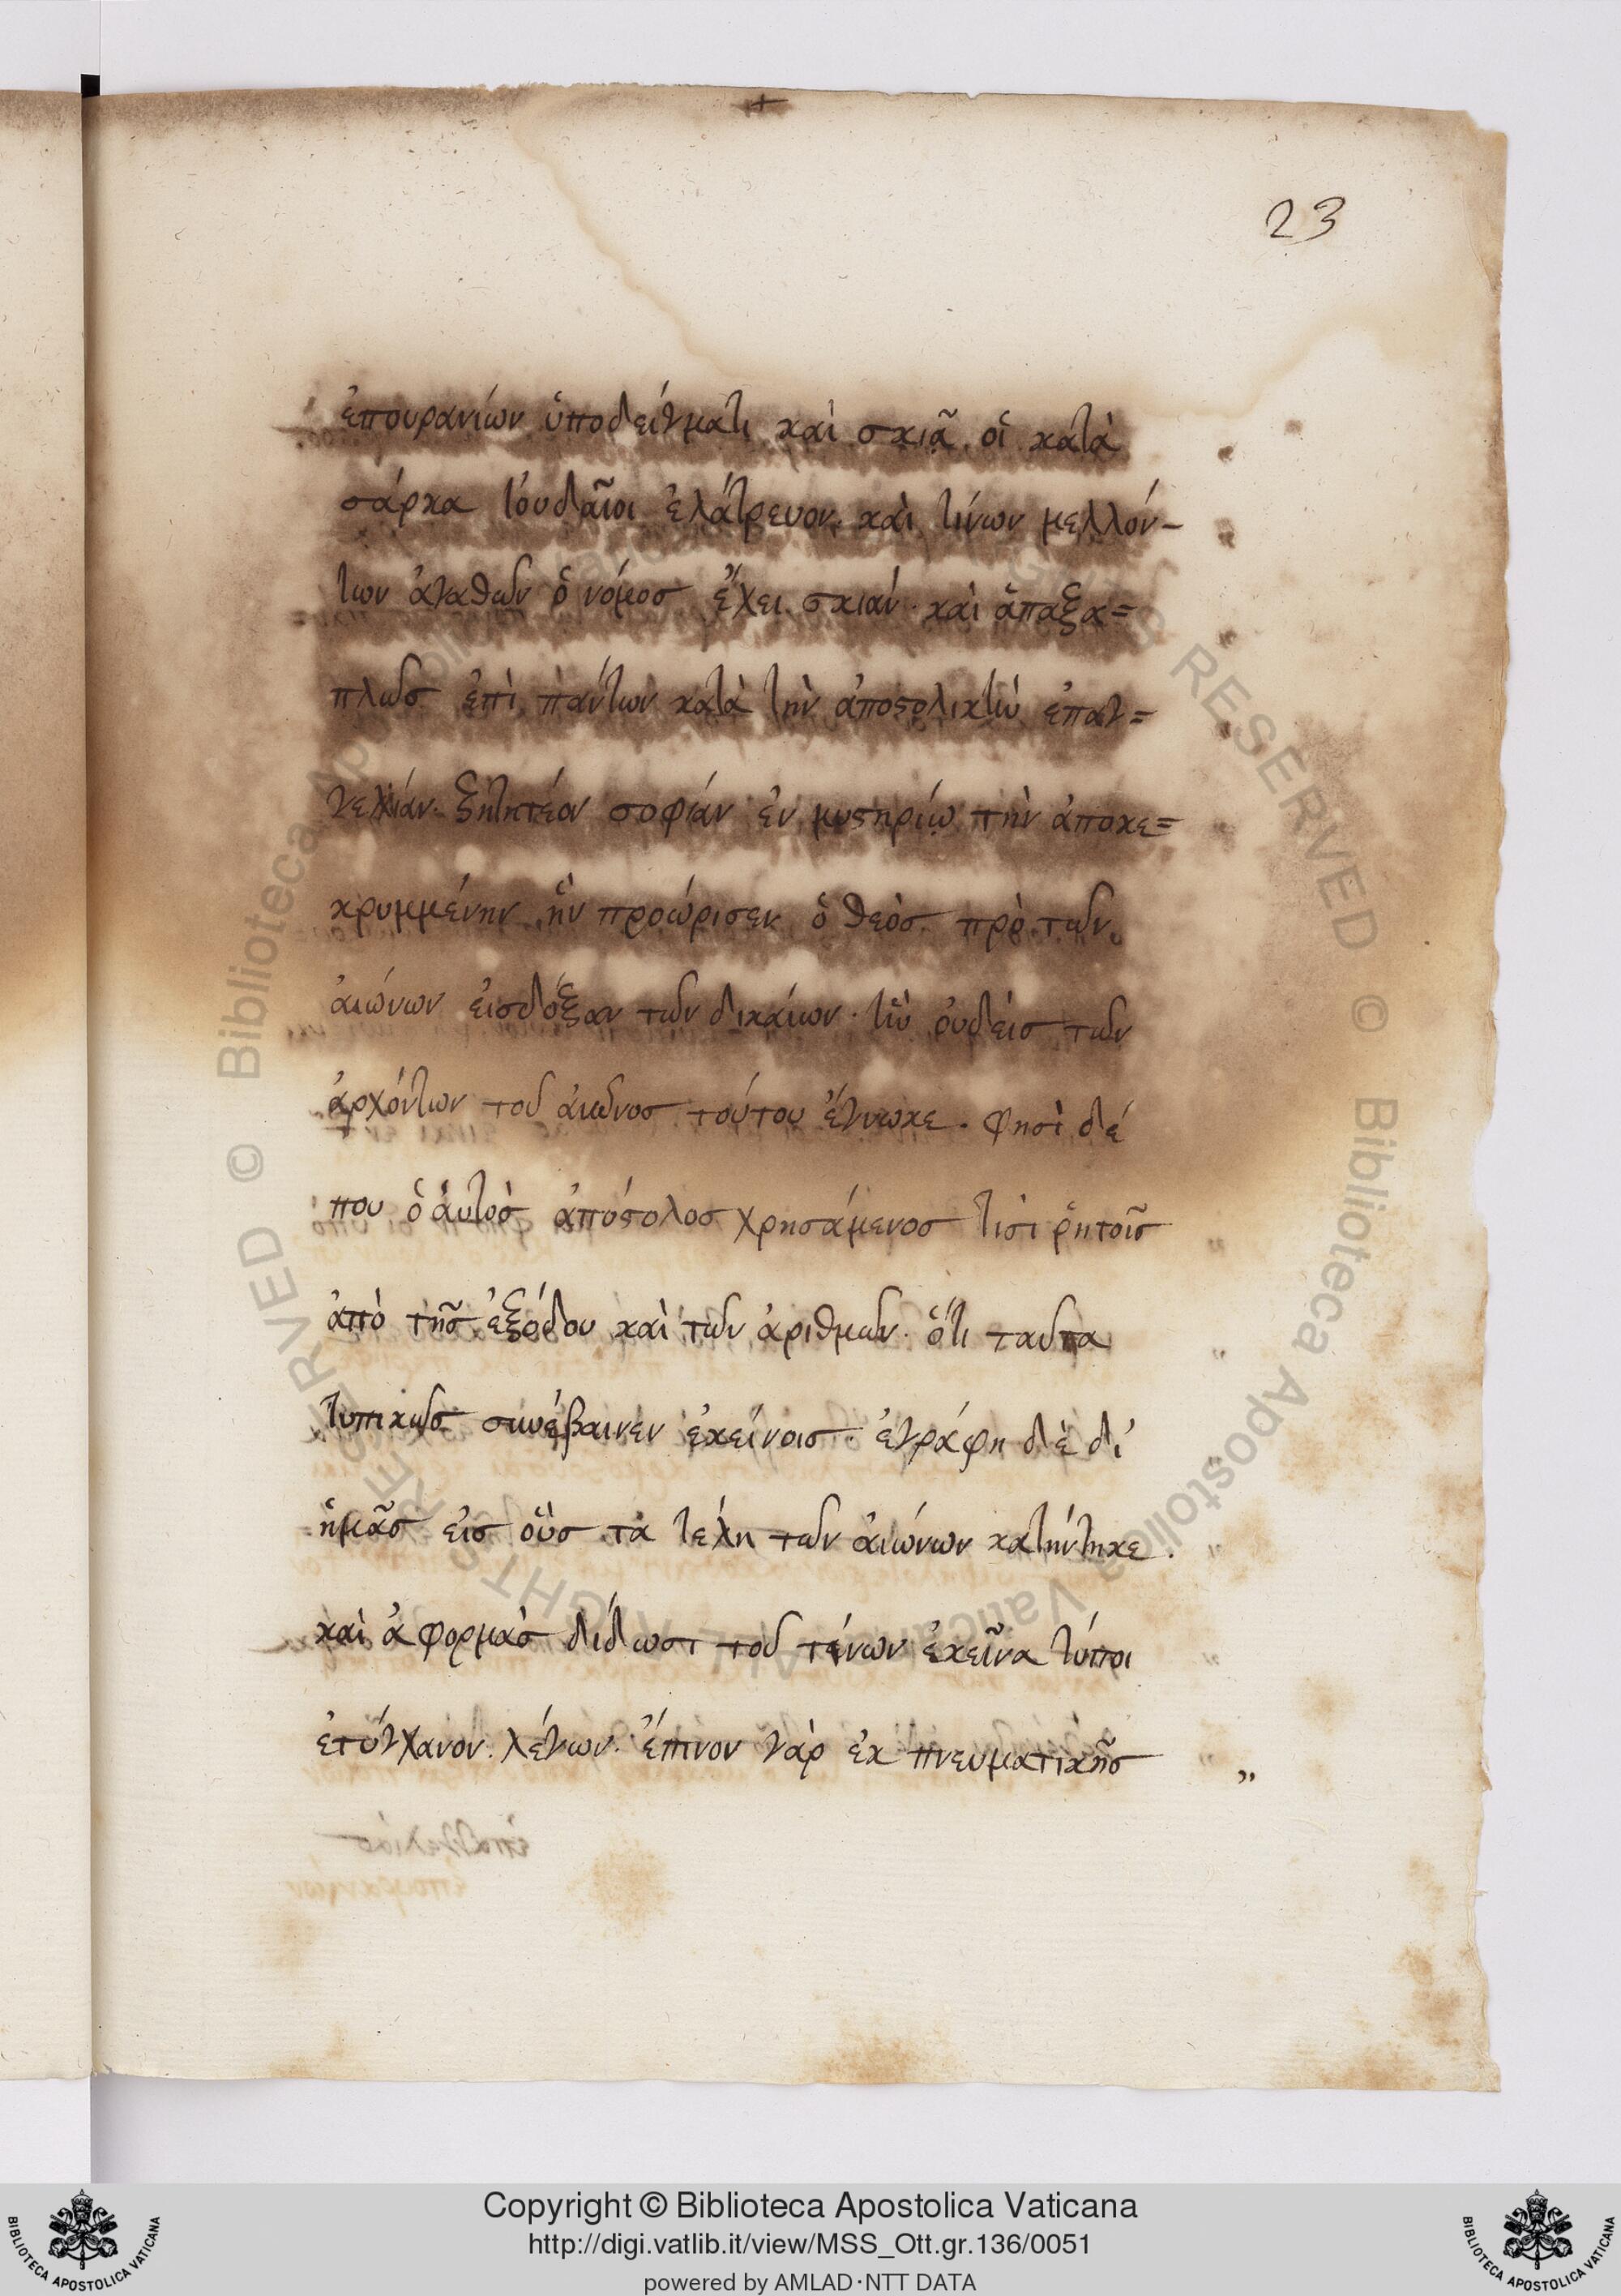 23
ἐπουρανίων ὑποδείγματι καὶ σκιᾷ οἱ κατὰ
σάρκα Ἰουδαῖοι ἐλάτρευον. καὶ τίνων μελλόν-
των ἀγαθῶν ὁ νόμος ἔχει σκιάν. καὶ ἁπαξα=
πλῶς ἐπὶ πάντων κατὰ τὴν ἀποστολικὴν ἐπαγ=
γελίαν. ζητητέον σοφίαν ἐν μυστηρίῳ τὴν ἀποκε=
κρυμμένην ἣν προώρισεν ὁ θεὸς πρὸ τῶν
αἰώνων εἰς δόξαν τῶν δικαίων. ἣν οὐδεὶς τῶν
ἀρχόντων τοῦ αἰῶνος τούτου ἔγνωκε. φησὶ δέ
που ὁ αὐτὸς ἀπόστολος χρησάμενος τισὶ ῥητοῖς
ἀπὸ τῆς ἐξόδου καὶ τῶν ἀριθμῶν. ὅτι ταῦτα
τυπικῶς συνέβαινεν ἐκείνοις. ἐγράφη δὲ δι'
ἡμᾶς εἰς οὓς τὰ τέλη τῶν αἰώνων κατήντηκε.
καὶ ἀφορμὰς δίδωσι τοῦ τίνων ἐκεῖνα τύποι
ἐτύγχανον. λέγων. ἔπινον γὰρ ἐκ πνευματικῆς „
Copyright © Biblioteca Apostolica Vaticana
http://digi.vatlib.it/view/MSS_Ott.gr.136/0051
powered by AMLAD·NTT DATA
BIBLIOTECA APOSTOLICA VATICANA
BIBLIOTECA APOSTOLICA VATICANA